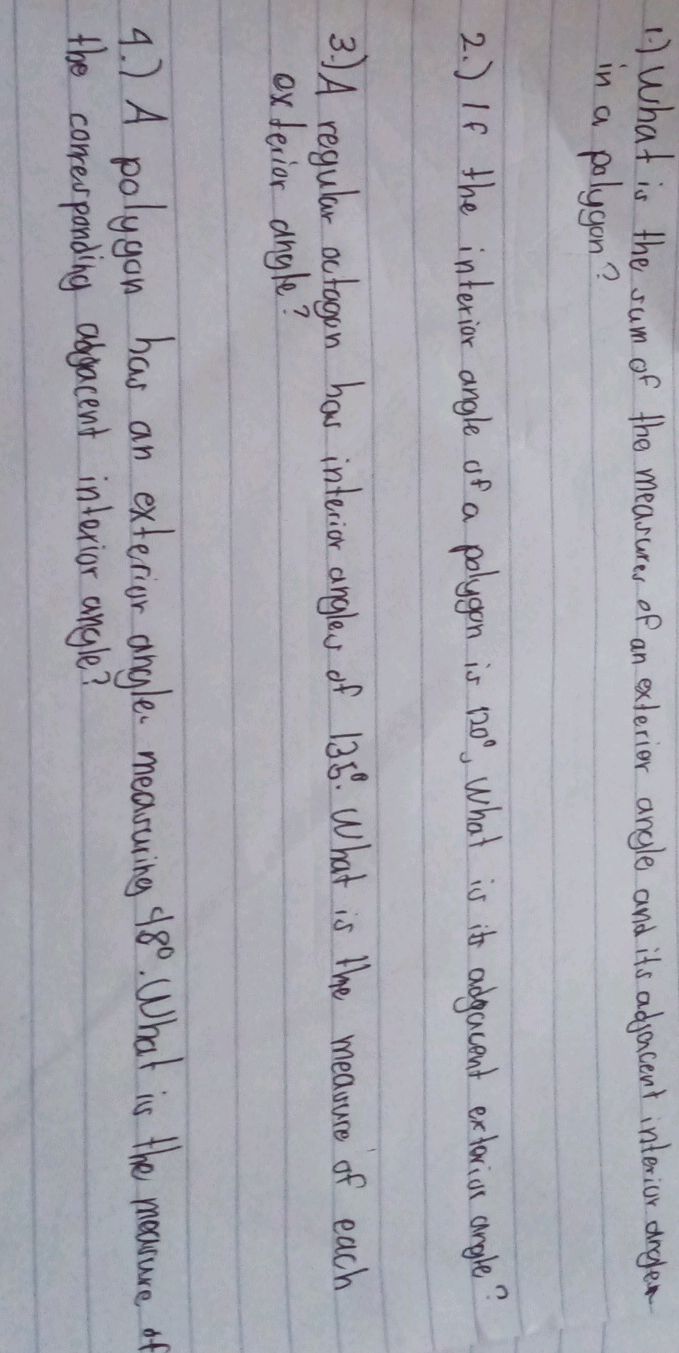 1.) What is the sum of the measures of an exterior angle and its adjacent interior angle
in a polygon?
2.) If the interior angle of a polygon is 120°, What is its adjacent exterior angle?
3.) A regular octagon has interior angles of 135°. What is the measure of each
exterior angle?
4.) A polygon has an exterior angle measuring 48°. What is the measure of
the corresponding adjacent interior angle?